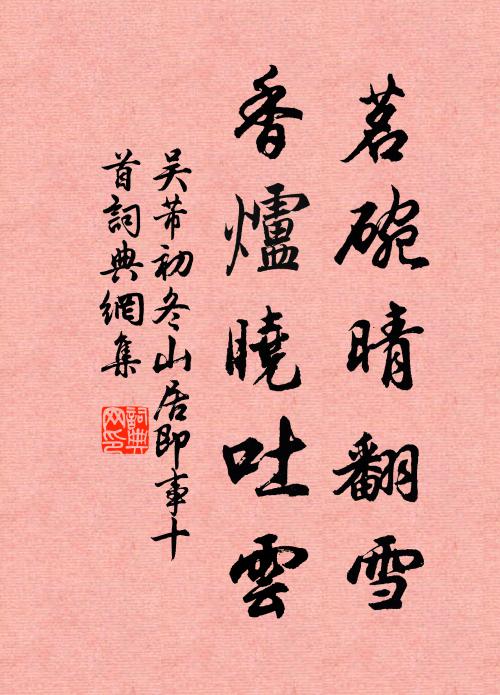 茗碗晴翻雪
香爐曉吐雲
吴芾初冬山居即事十
首詞典網集
詞典
网印